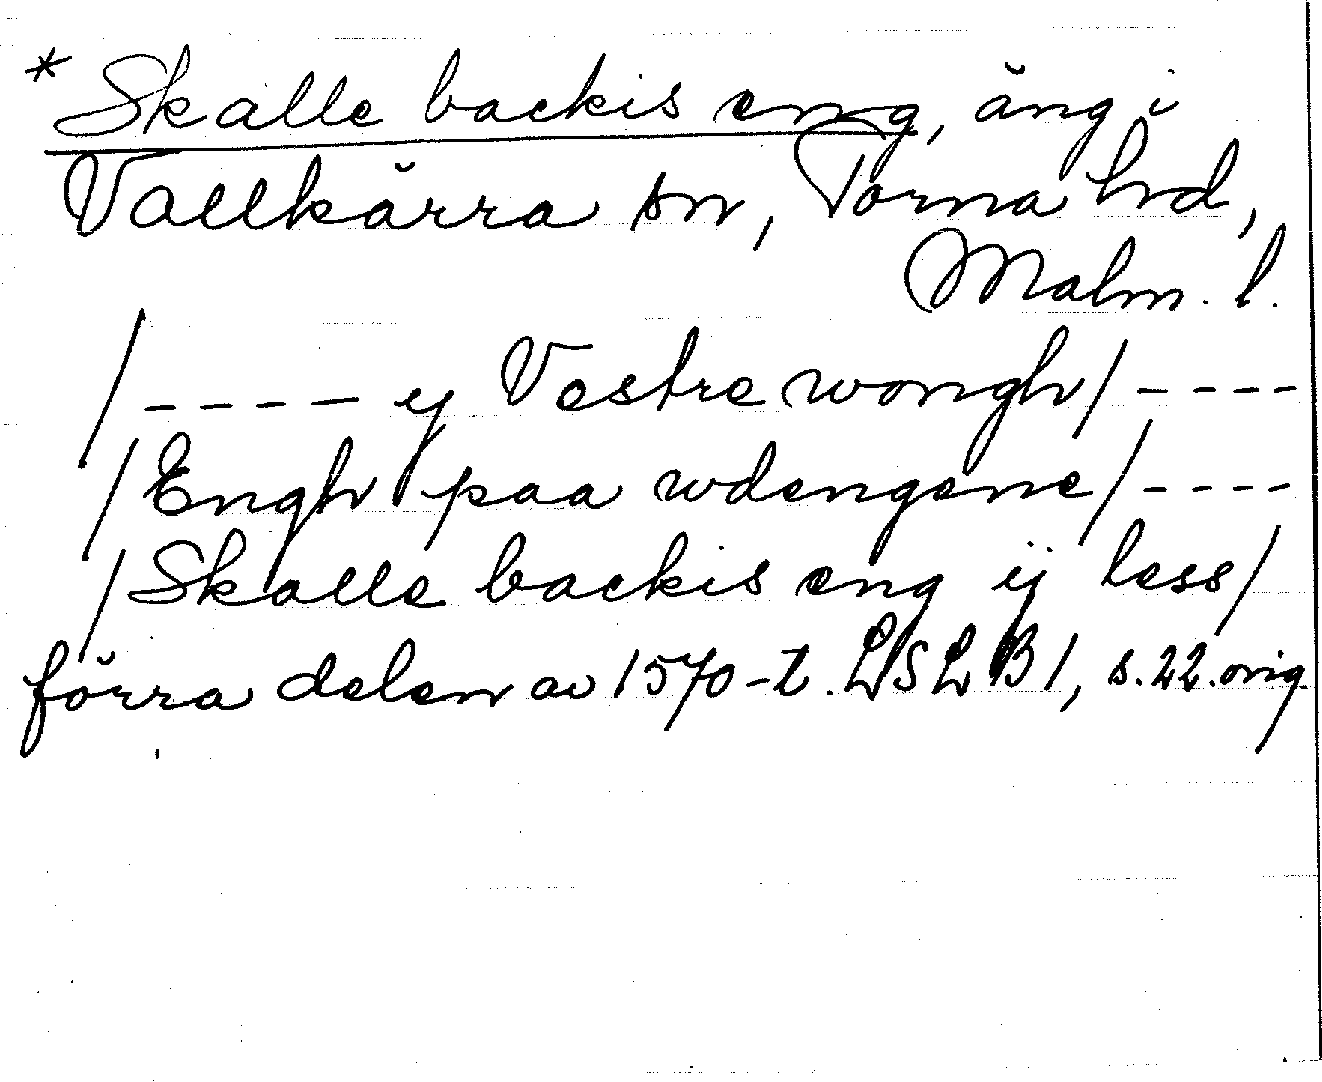 * Skalle backis eng, äng i
Vallkärra sn, Torna hd,
Malm. l.
/---- ij Vestre wongh/----
/Engh paa wdengene/----
/Skalle backis eng ij less/
förra delen av 1570-t. LSLB 1, s. 22. orig.